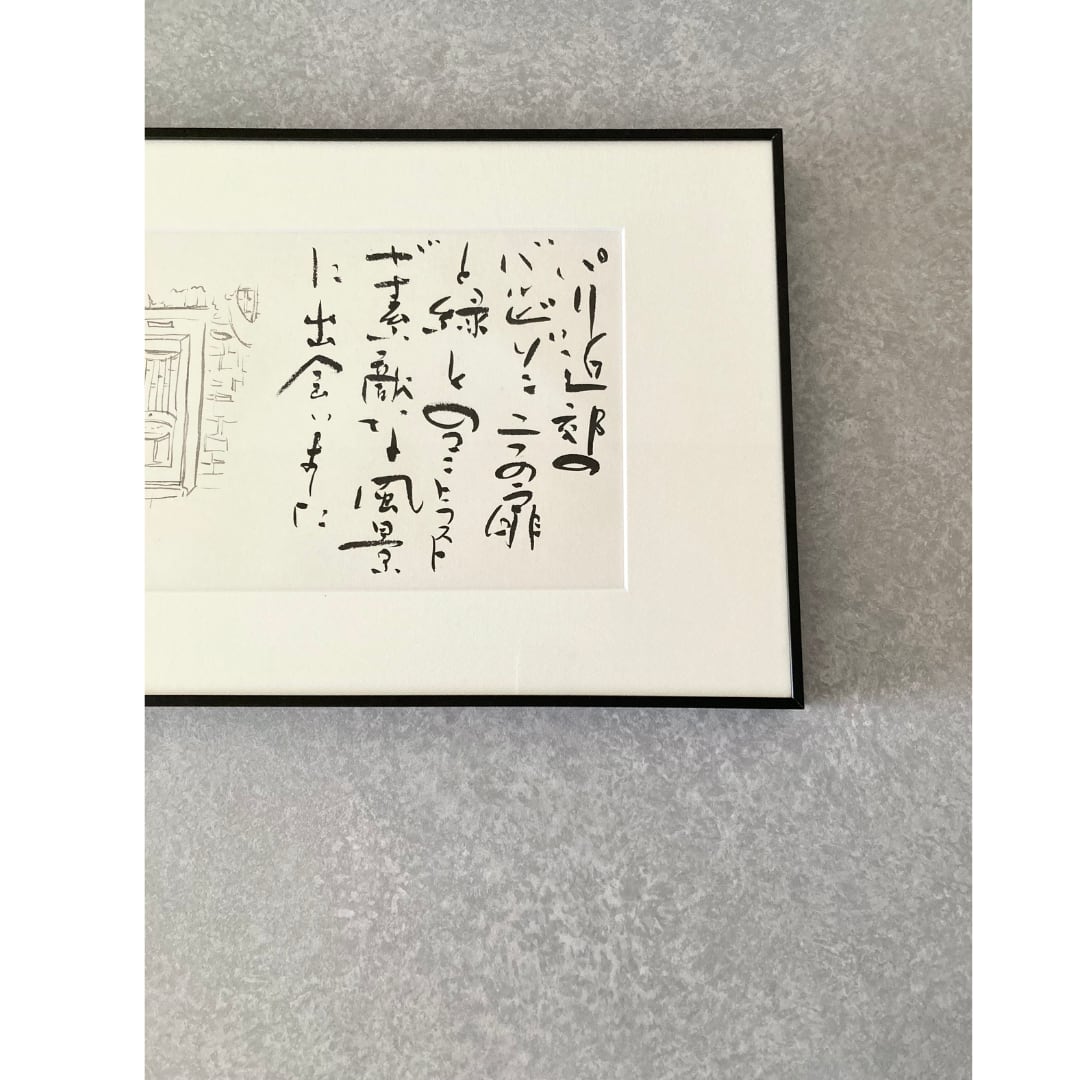 パリ近郊の
バルビゾン二つの扉
と緑とのコントラスト
が素敵な風景
に出会いました